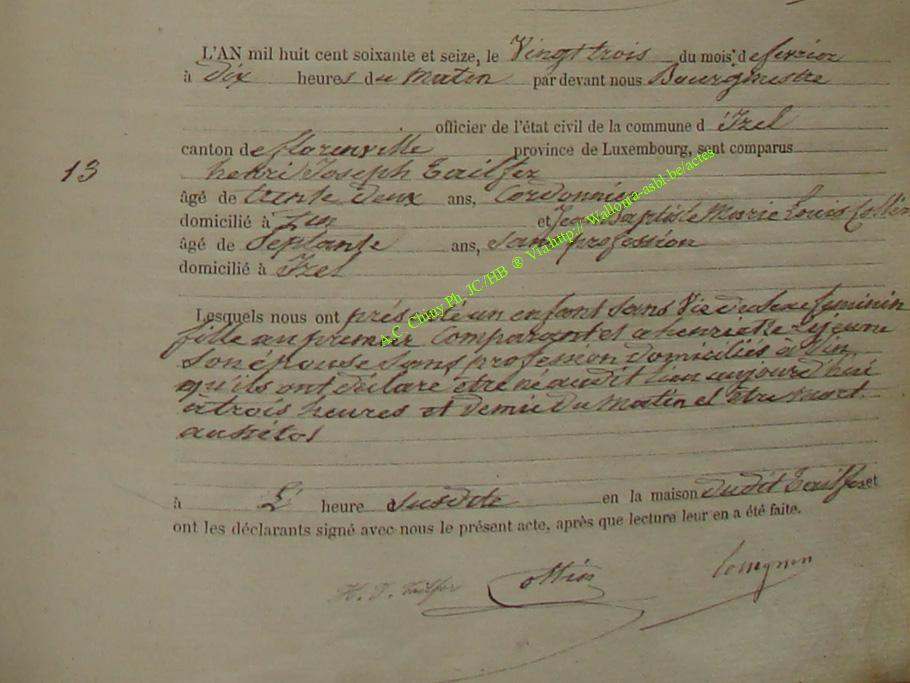 L'AN mil huit cent soixante et seize, le Vingt trois du mois de fevrier
à dix heures du Matin par devant nous Bourgmestre
officier de l'état civil de la commune d Izel
canton de florenville province de Luxembourg, sont comparus
13
henri Joseph Tailfer
âgé de trente deux ans, Cordonnier
domicilié à et Jean Baptiste Marie Louis
âgé de Septante ans, sans profession
domicilié à Izel
Lesquels nous ont présenté un enfant sans Vie du sexe feminin
fille au premier Comparant et a henriette Lejeune
son épouse sans profession domiciliés à
qu'ils ont déclaré être né audit lieu aujourd'hui
à trois heures et demie du Matin et être mort
aussitot
à L' heure susdite en la maison dudit Tailfer et
ont les déclarants signé avec nous le présent acte, après que lecture leur en a été faite.
H. J. Tailfer
A.C. Chiny.Ph. JC/HB ® Via:http:// Wallonia-asbl.be/actes